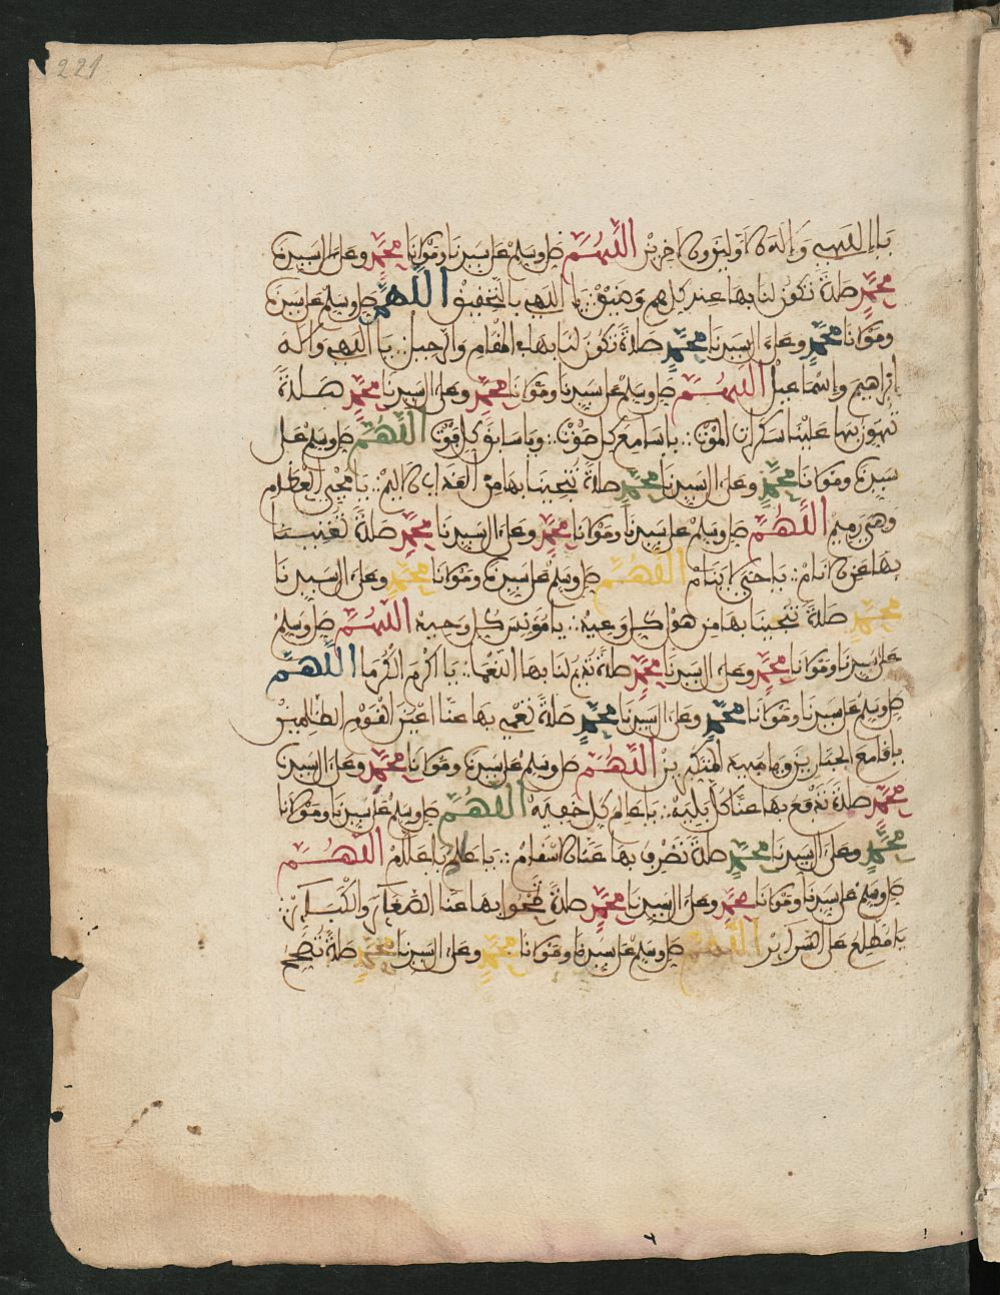 221
يا إلهي وإله الأولين والآخرين اللهم صل وسلم على سيدنا ومولانا محمد وعلى آل سيدنا
محمد صلاة تكون لنا بها عند كل هم وضيق يا إلهي بالتحقيق اللهم صل وسلم على سيدنا
ومولانا محمد وعلى آل سيدنا محمد صلاة تكون لنا بها المقام والرحيل يا إلهي وإله
إبراهيم وإسماعيل اللهم صل وسلم على سيدنا ومولانا محمد وعلى آل سيدنا محمد صلاة
تهون بها علينا سكرات الموت يا سامع كل صوت ويا سابق كل فوت اللهم صل وسلم على
سيدنا ومولانا محمد وعلى آل سيدنا محمد صلاة تنجينا بها من العذاب الأليم يا محيي العظام
وهي رميم اللهم صل وسلم على سيدنا ومولانا محمد وعلى آل سيدنا محمد صلاة تغنينا
بها عن الأنام يا حي لا ينام اللهم صل وسلم على سيدنا ومولانا محمد وعلى آل سيدنا
محمد صلاة تنجينا بها من هول كل يا مؤنس كل وحيد اللهم صل وسلم
على سيدنا ومولانا محمد وعلى آل سيدنا محمد صلاة تديم لنا بها النعما يا أكرم الكرما اللهم
صل وسلم على سيدنا ومولانا محمد وعلى آل سيدنا محمد صلاة تعمي بها عنا أعين القوم الظلمين
يا قامع الجبارين اللهم صل وسلم على سيدنا ومولانا محمد وعلى آل سيدنا
محمد صلاة تدفع بها عنا كل بلية يا عالم كل خفية اللهم صل وسلم على سيدنا ومولانا
محمد وعلى آل سيدنا محمد صلاة تصرف بها عنا الأسقام يا علام اللهم
صل وسلم على سيدنا ومولانا محمد وعلى آل سيدنا محمد صلاة تمحوا بها عنا الصغائر والكبائر
يا مطلع على السرائر اللهم صل وسلم على سيدنا ومولانا محمد وعلى آل سيدنا محمد صلاة تصحح